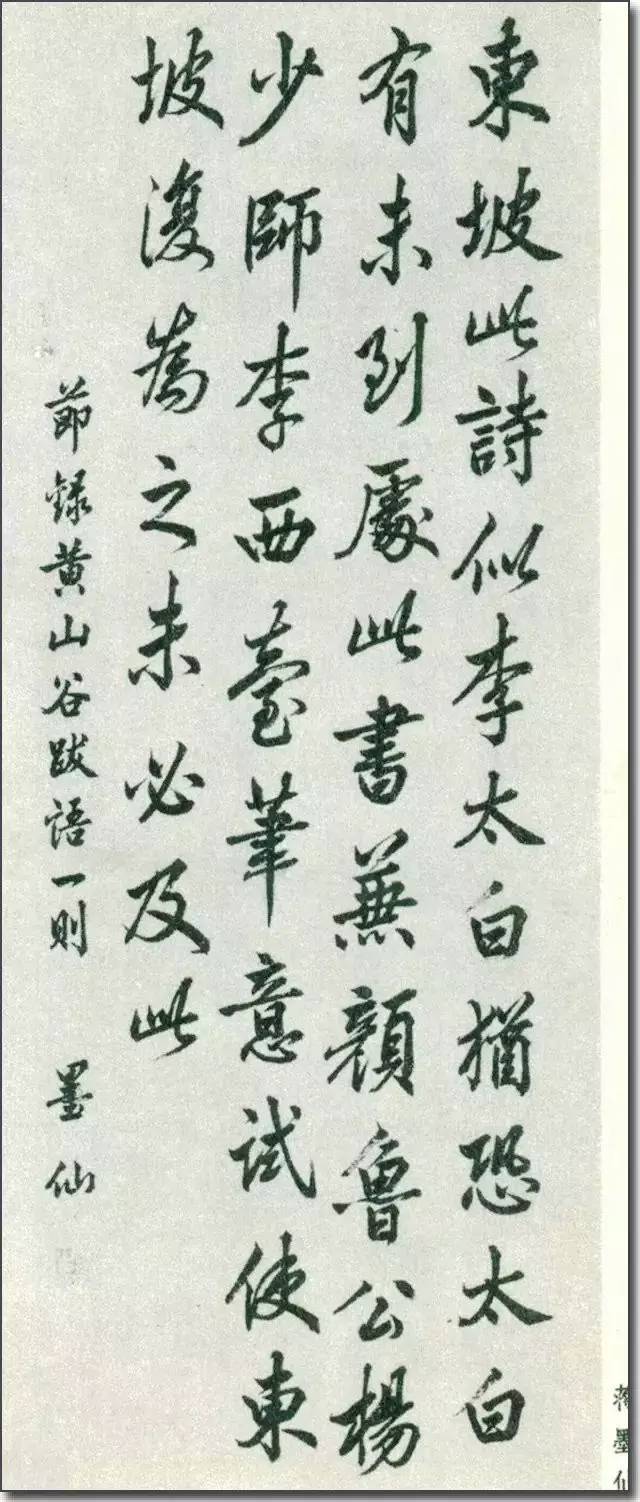 東坡此詩似李太白猶恐太白
有未到處此書兼顏魯公楊
少師李西臺筆意試使東
坡復為之未必及此
節錄黃山谷跋語一則 墨仙
蔣墨仙